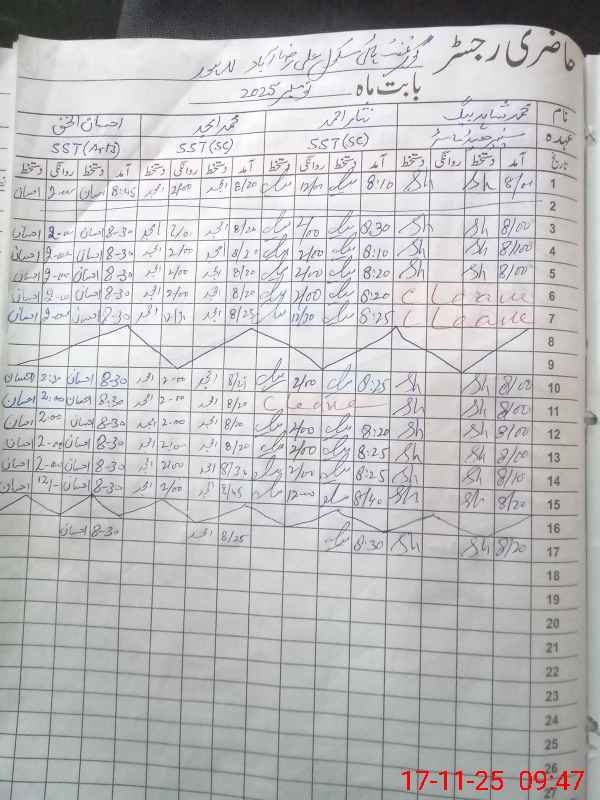 حاضری رجسٹر گورنمنٹ ہائی سکول علی رضا آباد لاہور
بابت ماہ نومبر 2025
نام محمد شاہد بیگ نثار احمد محمد امجد احسان الحق
عہدہ SST(SC) SST(SC) SST(Arts)
تاریخ آمد دستخط روانگی دستخط آمد دستخط روانگی دستخط آمد دستخط روانگی دستخط آمد دستخط روانگی دستخط
1 8/00 Sh Sh 8:10 12/00 8/20 امجد 2/00 امجد 8:45 احسان 2-00 احسان
2
3 8/00 Sh Sh 8:30 2/00 8/20 امجد 2/01 امجد 8-30 احسان 2-00 احسان
4 8/00 Sh Sh 8:10 2/00 8/20 امجد 2/00 امجد 8-30 احسان 2-00 احسان
5 8/00 Sh Sh 8:20 2/00 8/20 امجد 2/00 امجد 8-30 احسان 2-00 احسان
6 8:20 2/00 8/20 امجد 2/00 امجد 8-30 احسان 2-00 احسان
7 8:25 12/30 8/25 امجد امجد 8-30 احسان 2-00 احسان
8
9
10 8/00 Sh Sh 8:25 2/00 8/25 امجد 2-00 امجد 8-30 احسان 2:30 احسان
11 8/00 Sh Sh 8/20 امجد 2-00 امجد 8:30 احسان 2:00 احسان
12 8/00 Sh Sh 8:20 2/00 8/20 امجد 2-00 امجد 8-30 احسان 2-00 احسان
13 8/00 Sh Sh 8:25 2/00 8/20 امجد 2/00 امجد 8-30 احسان 2-00 احسان
14 8/10 Sh Sh 8:25 2/00 8/35 امجد 2/00 امجد 8-30 احسان 2-00 احسان
15 8/20 Sh Sh 8/40 12-00 8/45 امجد امجد 8-30 احسان احسان
16
17 8/20 Sh Sh 8:30 8/25 امجد 8-30 احسان
18
19
20
21
22
23
24
25
26
27
17-11-25 09:47